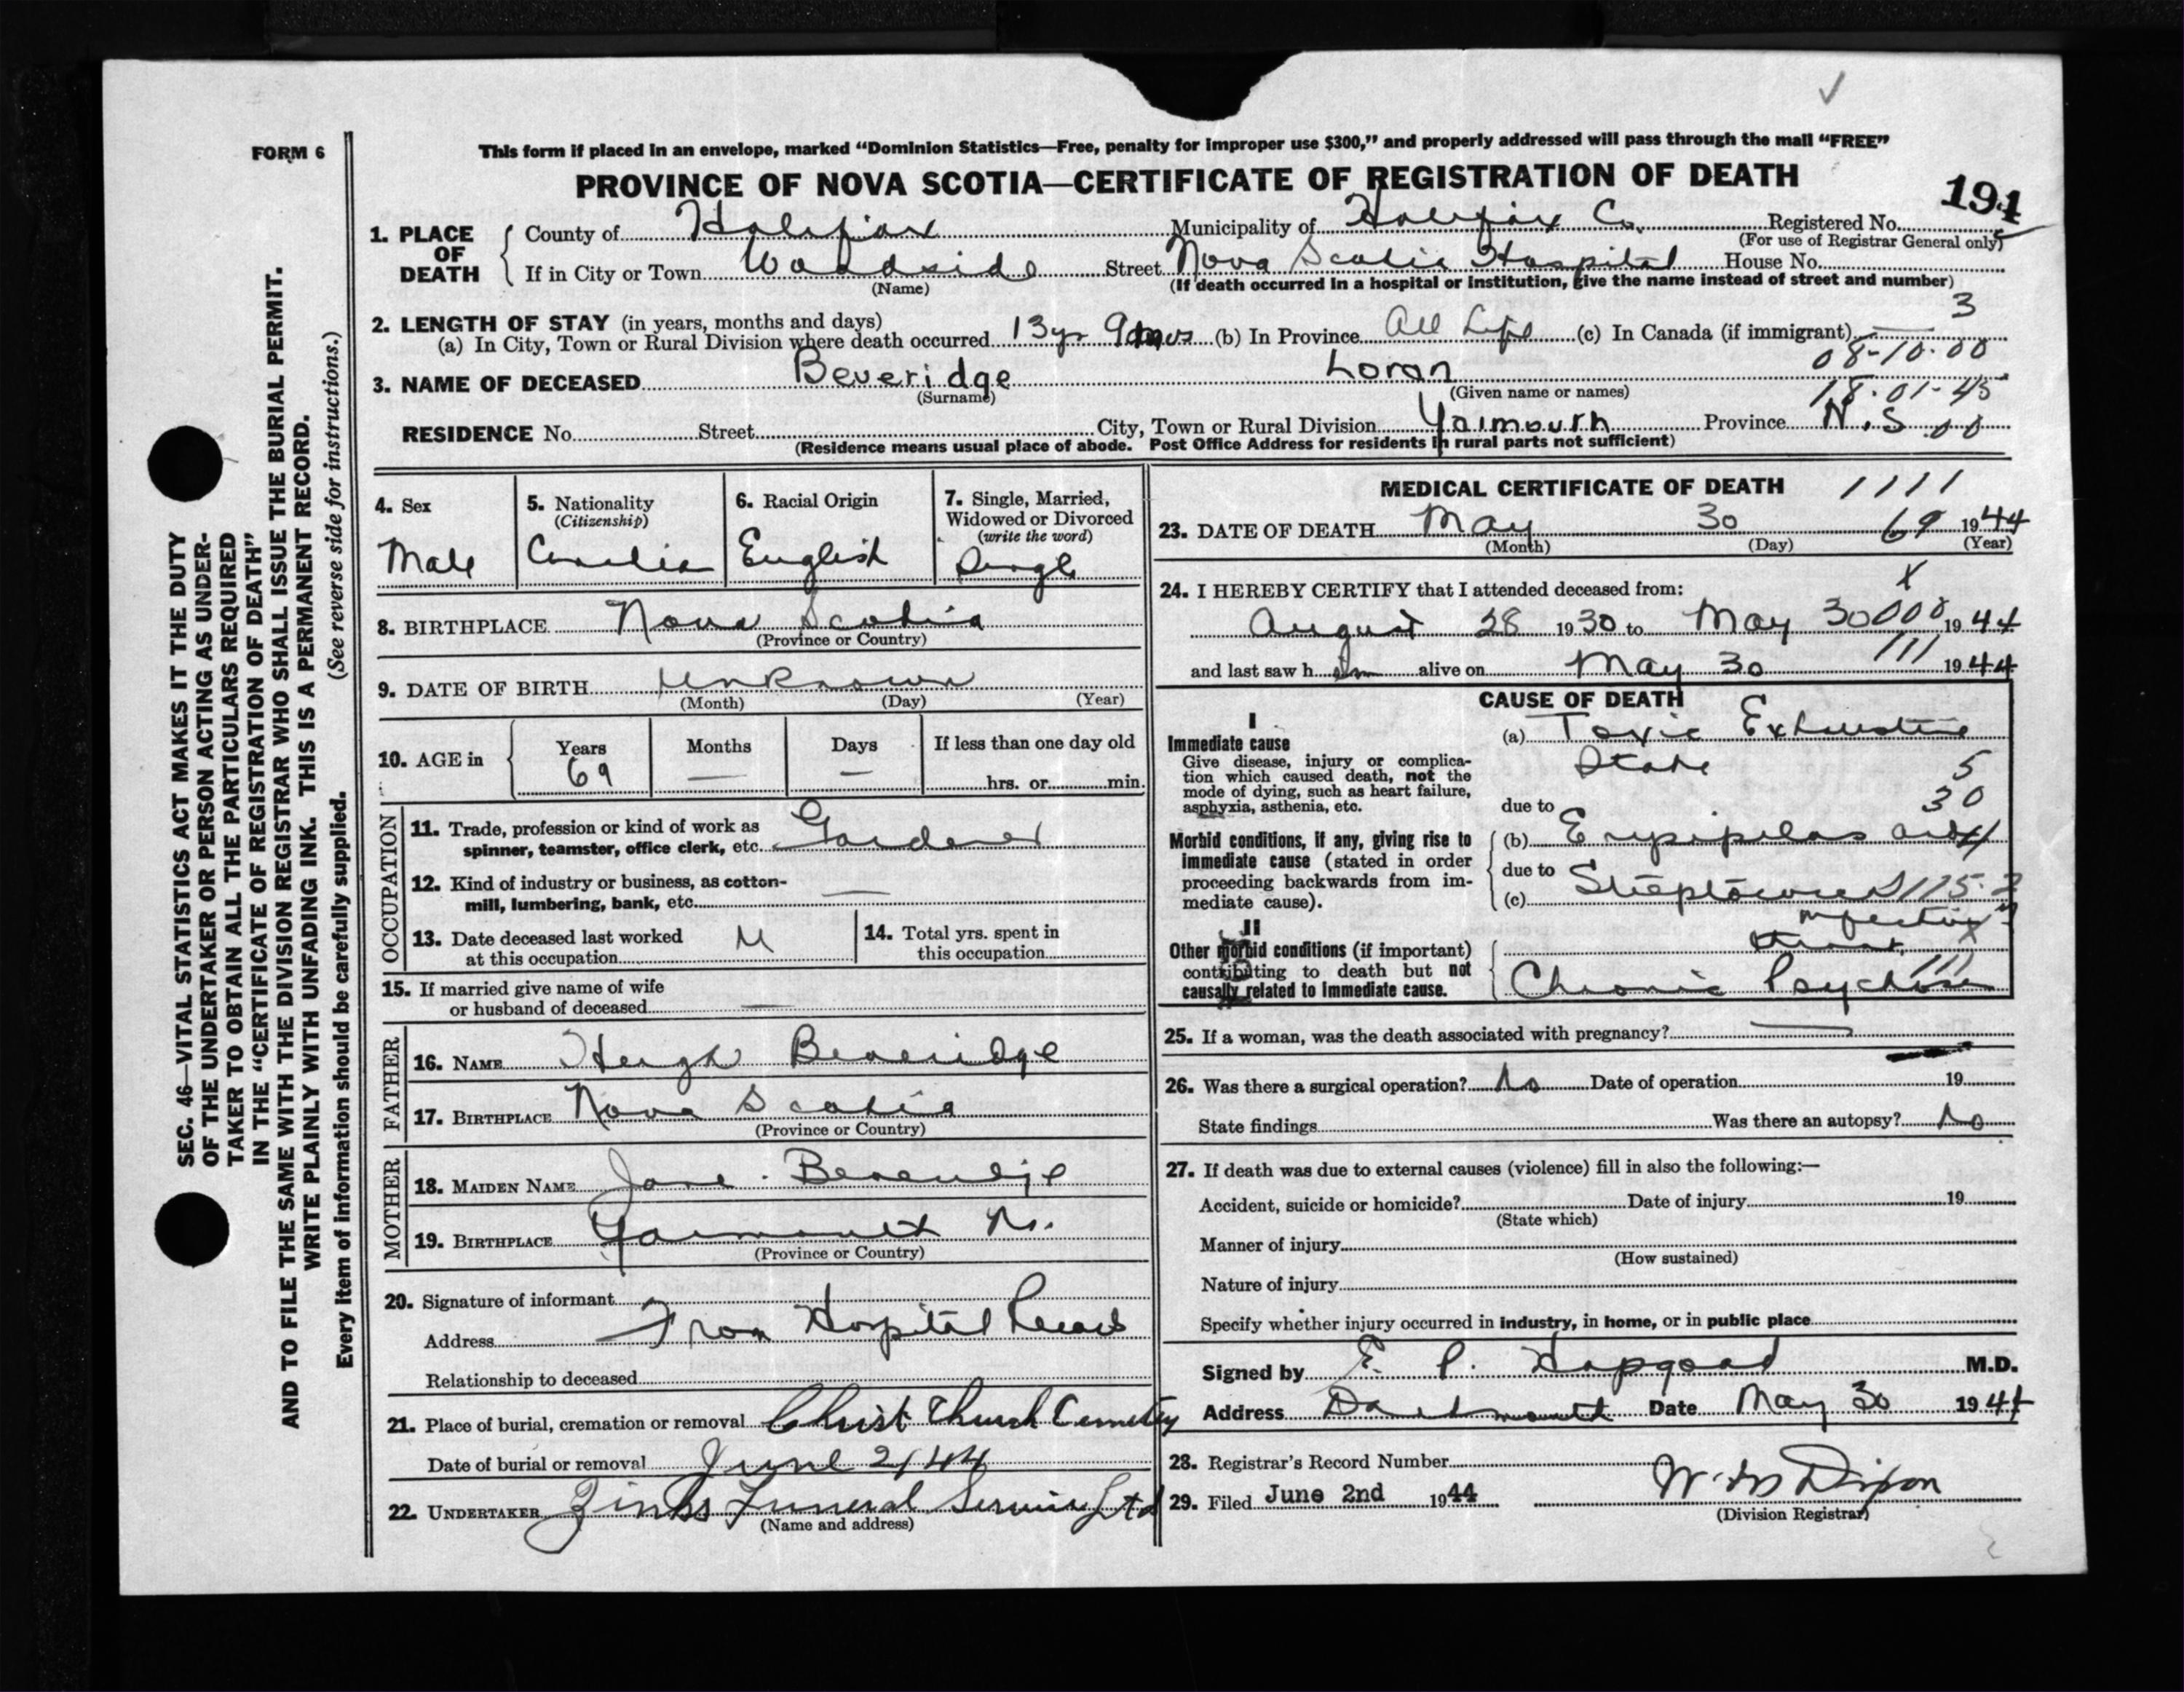 FORM 6
This form if placed in an envelope, marked "Dominion Statistics—Free, penalty for improper use $300," and properly addressed will pass through the mail "FREE"
PROVINCE OF NOVA SCOTIA—CERTIFICATE OF REGISTRATION OF DEATH
194
1. PLACE OF DEATH County of Halifax Municipality of Halifax Co. Registered No.
(For use of Registrar General only)
If in City or Town Woodside Street Nova Scotia Hospital House No.
(Name) (If death occurred in a hospital or institution, give the name instead of street and number)
3
2. LENGTH OF STAY (in years, months and days)
(a) In City, Town or Rural Division where death occurred 13 yr 9 mos (b) In Province All Life (c) In Canada (if immigrant) —
08-10-00
3. NAME OF DECEASED Beveridge Loran
(Surname) (Given name or names) 18-01-45
RESIDENCE No. Street City, Town or Rural Division Yarmouth Province N.S. 00
(Residence means usual place of abode. Post Office Address for residents in rural parts not sufficient)
4. Sex Male
5. Nationality (Citizenship)
6. Racial Origin English
7. Single, Married, Widowed or Divorced (write the word) Single
8. BIRTHPLACE Nova Scotia
(Province or Country)
9. DATE OF BIRTH Unknown
(Month) (Day) (Year)
10. AGE in Years 69 Months — Days — If less than one day old
hrs. or min.
OCCUPATION
11. Trade, profession or kind of work as
spinner, teamster, office clerk, etc. Gardener
12. Kind of industry or business, as cotton-
mill, lumbering, bank, etc. —
13. Date deceased last worked
at this occupation U
14. Total yrs. spent in
this occupation
15. If married give name of wife
or husband of deceased —
FATHER
16. NAME Hugh Beveridge
17. BIRTHPLACE Nova Scotia
(Province or Country)
MOTHER
18. MAIDEN NAME Jane Beveridge
19. BIRTHPLACE Yarmouth
(Province or Country)
20. Signature of informant
Address From Hospital Records
Relationship to deceased
21. Place of burial, cremation or removal Christ Church Cemetery
Date of burial or removal June 2/44
22. UNDERTAKER Zinks Funeral Service Ltd
(Name and address)
MEDICAL CERTIFICATE OF DEATH 1111
23. DATE OF DEATH May 30 69 1944
(Month) (Day) (Year)
24. I HEREBY CERTIFY that I attended deceased from: X
August 28 1930 to May 30 000 1944
and last saw him alive on May 30 111 1944
CAUSE OF DEATH
I
Immediate cause
Give disease, injury or complica-
tion which caused death, not the
mode of dying, such as heart failure,
asphyxia, asthenia, etc.
(a) Toxic Exhaustive
State 5
due to 30
Morbid conditions, if any, giving rise to
immediate cause (stated in order
proceeding backwards from im-
mediate cause).
(b) Erysipelas and
due to
(c) 115.2
infection
throat
II
Other morbid conditions (if important)
contributing to death but not
causally related to immediate cause.
111
Chronic Psychosis
25. If a woman, was the death associated with pregnancy? —
26. Was there a surgical operation? No Date of operation 19
State findings Was there an autopsy? No
27. If death was due to external causes (violence) fill in also the following:—
Accident, suicide or homicide? Date of injury 19
(State which)
Manner of injury
(How sustained)
Nature of injury
Specify whether injury occurred in industry, in home, or in public place
Signed by E. P. Hapgood M.D.
Address Dartmouth Date May 30 1944
28. Registrar's Record Number
29. Filed June 2nd 1944 Dixon
(Division Registrar)
SEC. 46—VITAL STATISTICS ACT MAKES IT THE DUTY
OF THE UNDERTAKER OR PERSON ACTING AS UNDER-
TAKER TO OBTAIN ALL THE PARTICULARS REQUIRED
IN THE "CERTIFICATE OF REGISTRATION OF DEATH"
AND TO FILE THE SAME WITH THE DIVISION REGISTRAR WHO SHALL ISSUE THE BURIAL PERMIT.
WRITE PLAINLY WITH UNFADING INK. THIS IS A PERMANENT RECORD.
Every item of information should be carefully supplied. (See reverse side for instructions.)